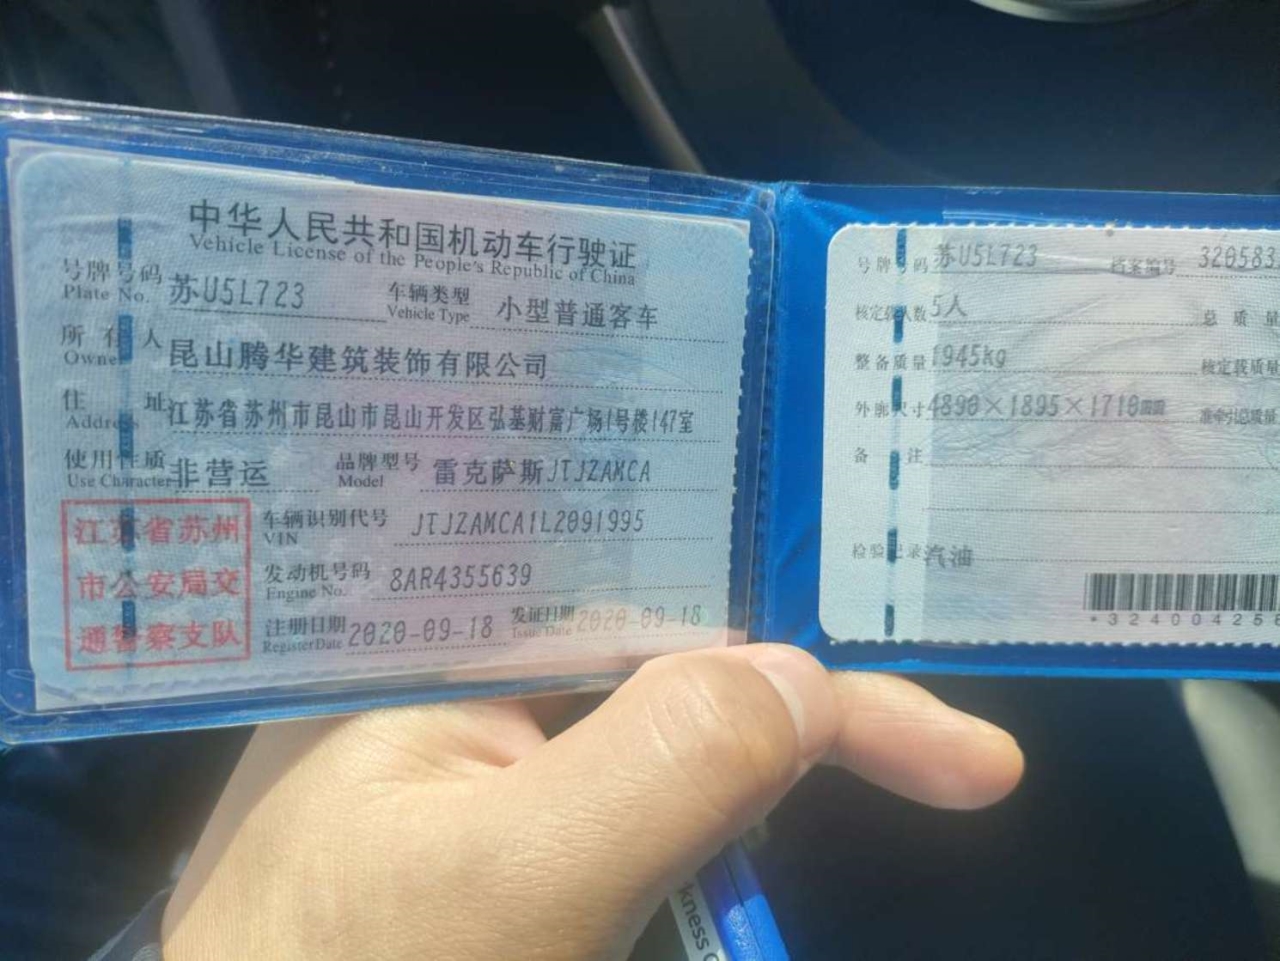 中华人民共和国机动车行驶证
Vehicle License of the People's Republic of China
号牌号码 苏U5L723 车辆类型 小型普通客车
Plate No. Vehicle Type
所有人 昆山腾华建筑装饰有限公司
Owner
住址 江苏省苏州市昆山市昆山开发区弘基财富广场1号楼147室
Address
使用性质 非营运 品牌型号 雷克萨斯JTJZAMCA
Use Character Model
江苏省苏州
市公安局交
通警察支队
车辆识别代号 JTJZAMCA1L2091995
VIN
发动机号码 8AR4355639
Engine No.
注册日期 2020-09-18 发证日期 2020-09-18
Register Date Issue Date
号牌号码 苏U5L723 档案编号 320583
核定载人数 5人 总质量
整备质量 1945kg 核定载质量
外廓尺寸 4890×1895×1710mm 准牵引总质量
备注
检验记录 汽油
*324004258
kness